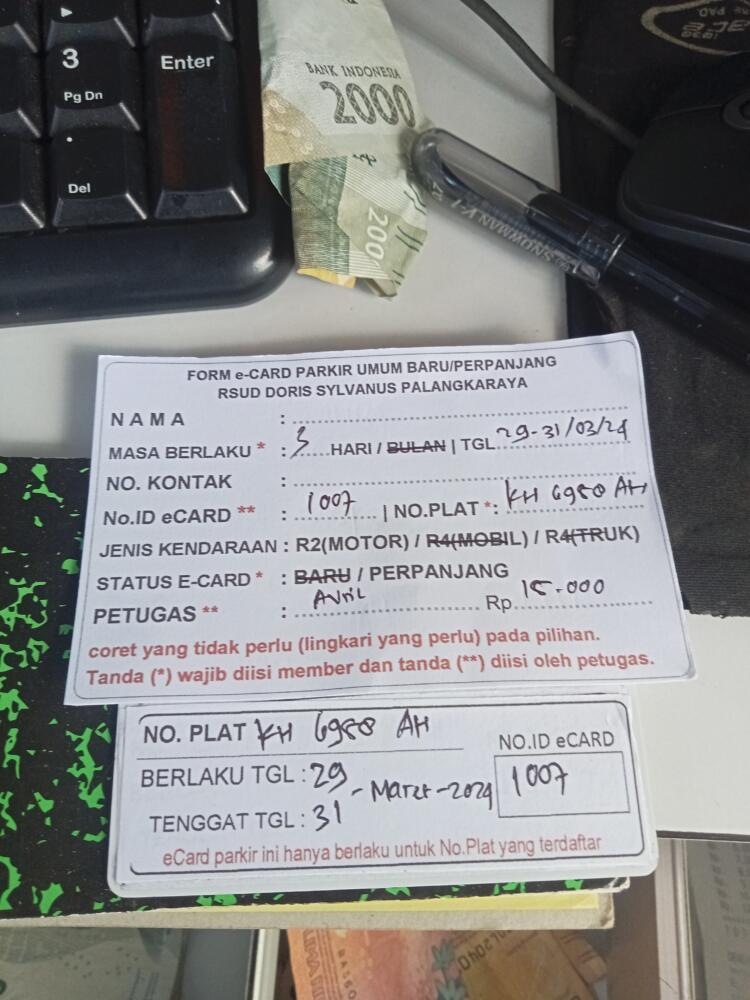 3
Pg Dn
Enter
.
Del
BANK INDONESIA
2000
200
SNOWMAN V7
FORM e-CARD PARKIR UMUM BARU/PERPANJANG
RSUD DORIS SYLVANUS PALANGKARAYA
NAMA :
MASA BERLAKU * : 3 HARI / BULAN | TGL 29-31/03/24
NO. KONTAK :
No.ID eCARD ** : 1007 | NO.PLAT *: KH 6980 AH
JENIS KENDARAAN : R2(MOTOR) / R4(MOBIL) / R4(TRUK)
STATUS E-CARD * : BARU / PERPANJANG
PETUGAS ** : AVRIL Rp 15.000
coret yang tidak perlu (lingkari yang perlu) pada pilihan.
Tanda (*) wajib diisi member dan tanda (**) diisi oleh petugas.
NO. PLAT KH 6980 AH
NO.ID eCARD
BERLAKU TGL : 29 - Maret - 2024
1007
TENGGAT TGL : 31
eCard parkir ini hanya berlaku untuk No.Plat yang terdaftar